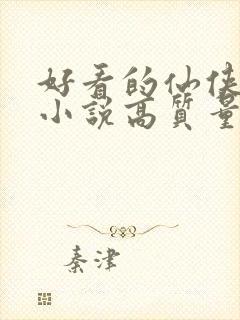 好看的仙侠
小说高质量
秦津